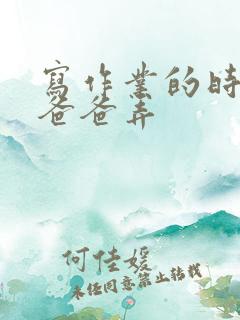 寫作業的時
爸爸弄
何佳媛
未經同意禁止轉載